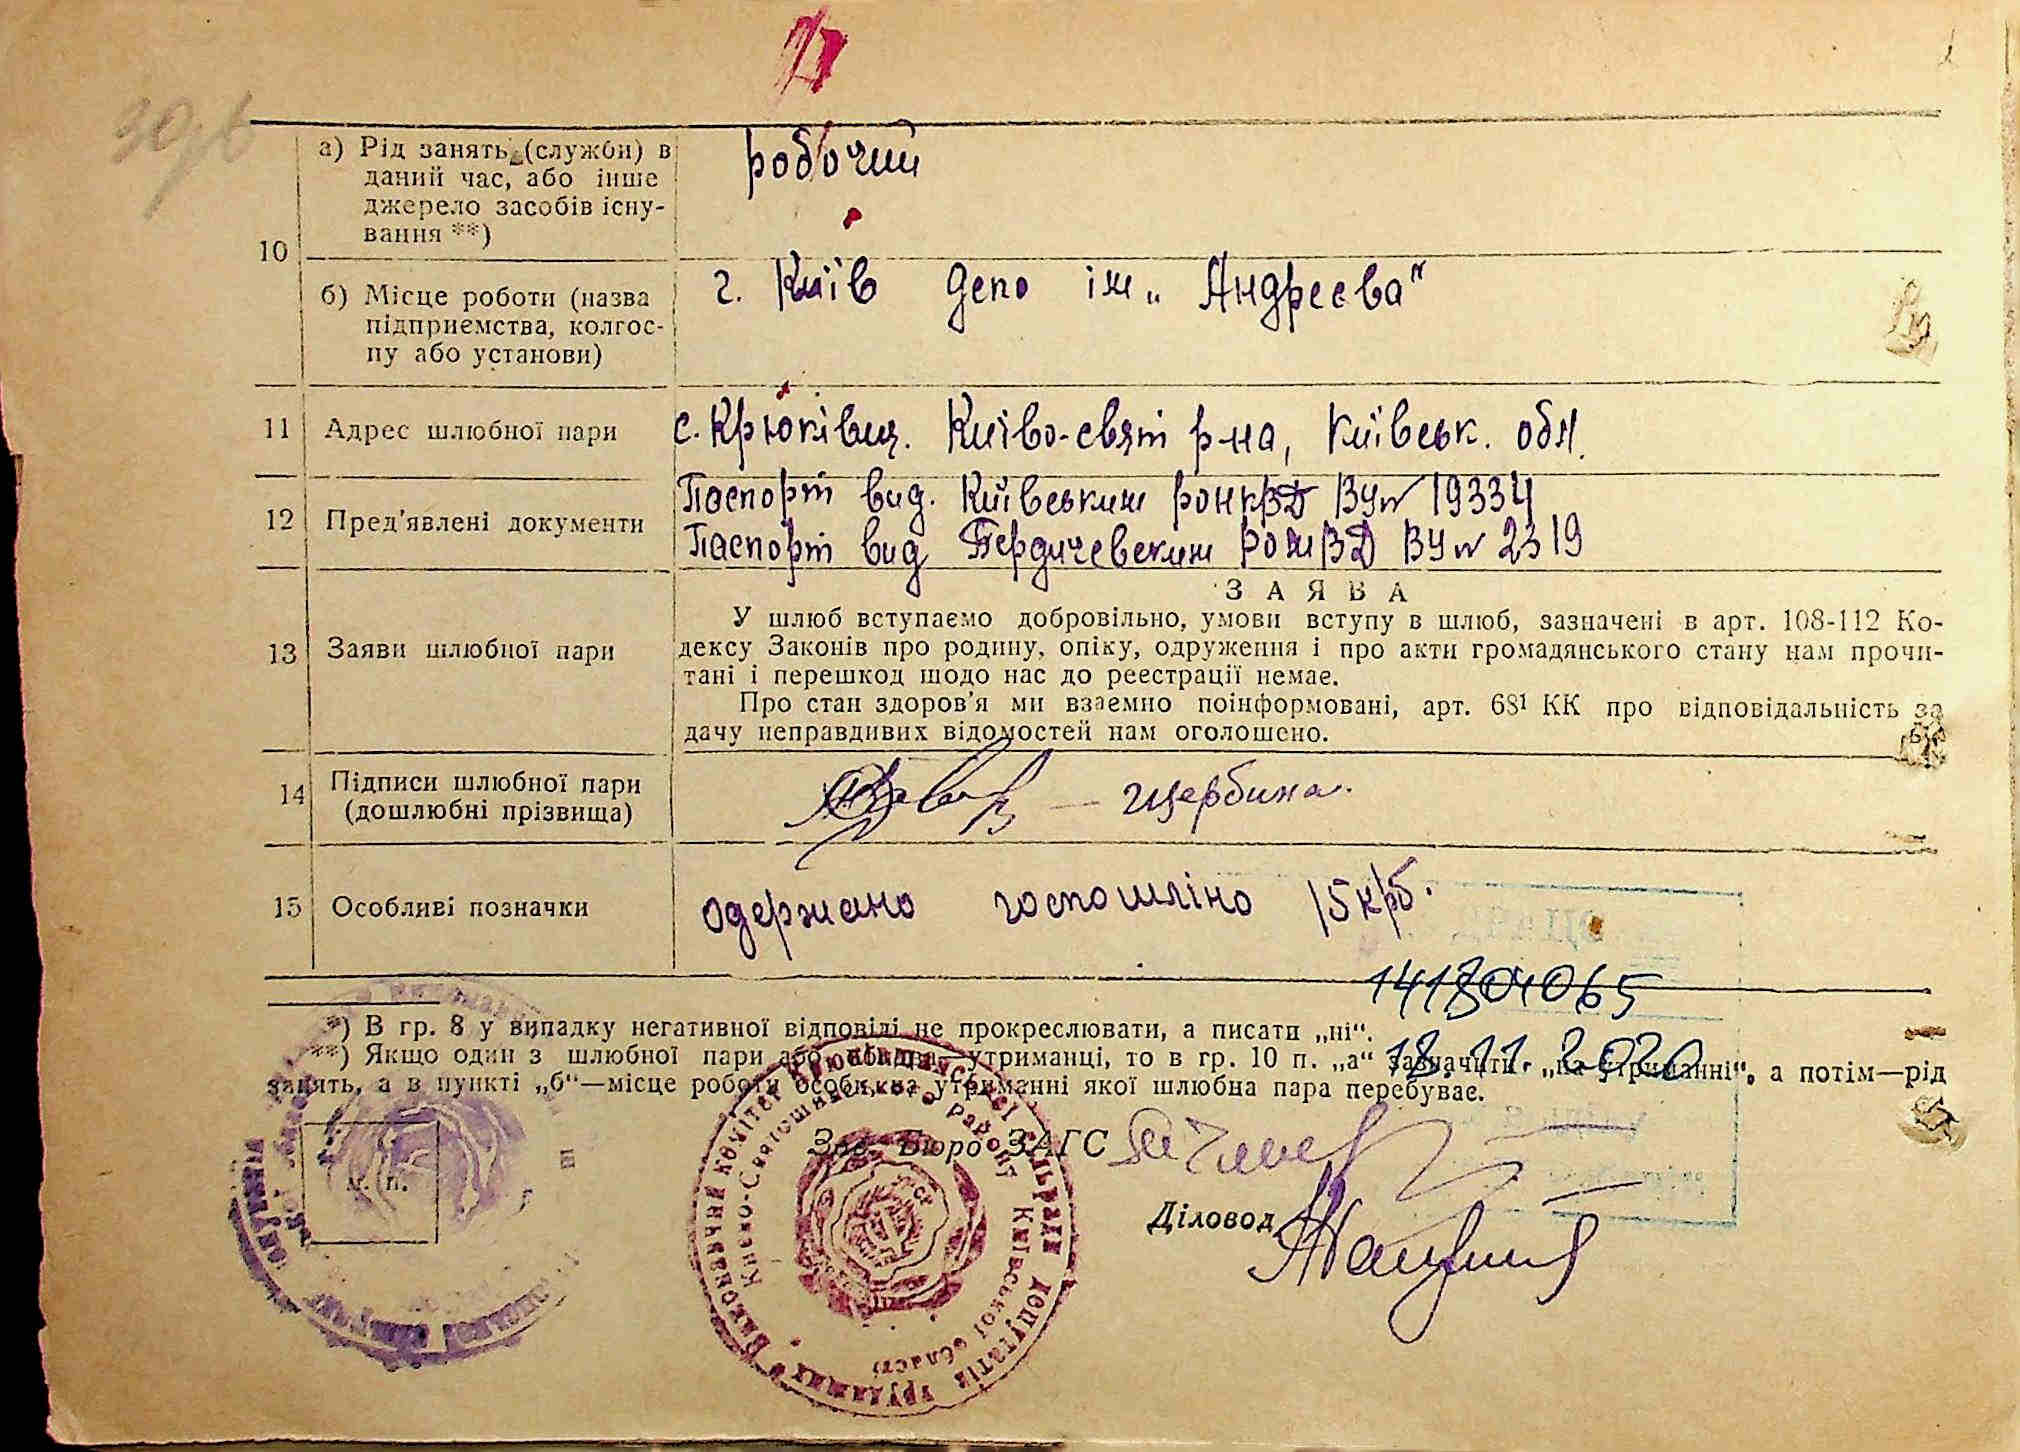 10
а) Рід занять (служби) в
даний час, або інше
джерело засобів існу-
вання **)
робочий
б) Місце роботи (назва
підприємства, колгос-
пу або установи)
г. Київ депо ім „Андреєва"
11 Адрес шлюбної пари
с. Крюківщ. Києво-свят р-на, Київськ. обл.
12 Пред'явлені документи
Паспорт вид. Київським 19334
Паспорт вид Бердичевским 2319
13 Заяви шлюбної пари
ЗАЯВА
У шлюб вступаємо добровільно, умови вступу в шлюб, зазначені в арт. 108-112 Ко-
дексу Законів про родину, опіку, одруження і про акти громадянського стану нам прочи-
тані і перешкод щодо нас до реєстрації немає.
Про стан здоров'я ми взаємно поінформовані, арт. 68¹ КК про відповідальність за
дачу неправдивих відомостей нам оголошено.
14 Підписи шлюбної пари
(дошлюбні прізвища)
— Щербина.
15 Особливі позначки
одержано госпошліно 15 крб.
141804065
18.11.2020
*) В гр. 8 у випадку негативної відповіді не прокреслювати, а писати „ні".
**) Якщо один з шлюбної пари або обидва—утриманці, то в гр. 10 п. „а" зазначити „на утриманні", а потім—рід
занять, а в пункті „б"—місце роботи особи, на утриманні якої шлюбна пара перебуває.
М. П.
Зав. Бюро ЗАГС
Діловод
Виконавчий комітет Крюківщинської сільради депутатів трудящих
Києво-Святошинського району Київської області